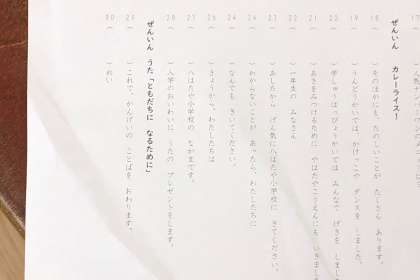 ぜんいん カレーライス！
18（ ）そのほかにも、たのしいことが たくさん あります。
19（ ）うんどうかいでは、かけっこや ダンスを しました。
20（ ）学しゅうはっぴょうかいでは みんなで げきを しまし
21（ ）あきをみつけるために やはたやこうえんにも いきま
22（ ）一年生の みなさん
23（ ）あしたから げん気にやはたや小学校に きてください。
24（ ）わからないことが あったら、わたしたちに
24（ ）なんでも きいてください。
26（ ）きょうから、わたしたちは
27（ ）八はたや小学校の なかまです。
28（ ）入学のおいわいに うたの プレゼントをします。
ぜんいん うた「ともだちに なるために」
29（ ）これで、かんげいの ことばを おわります。
30（ ）れい